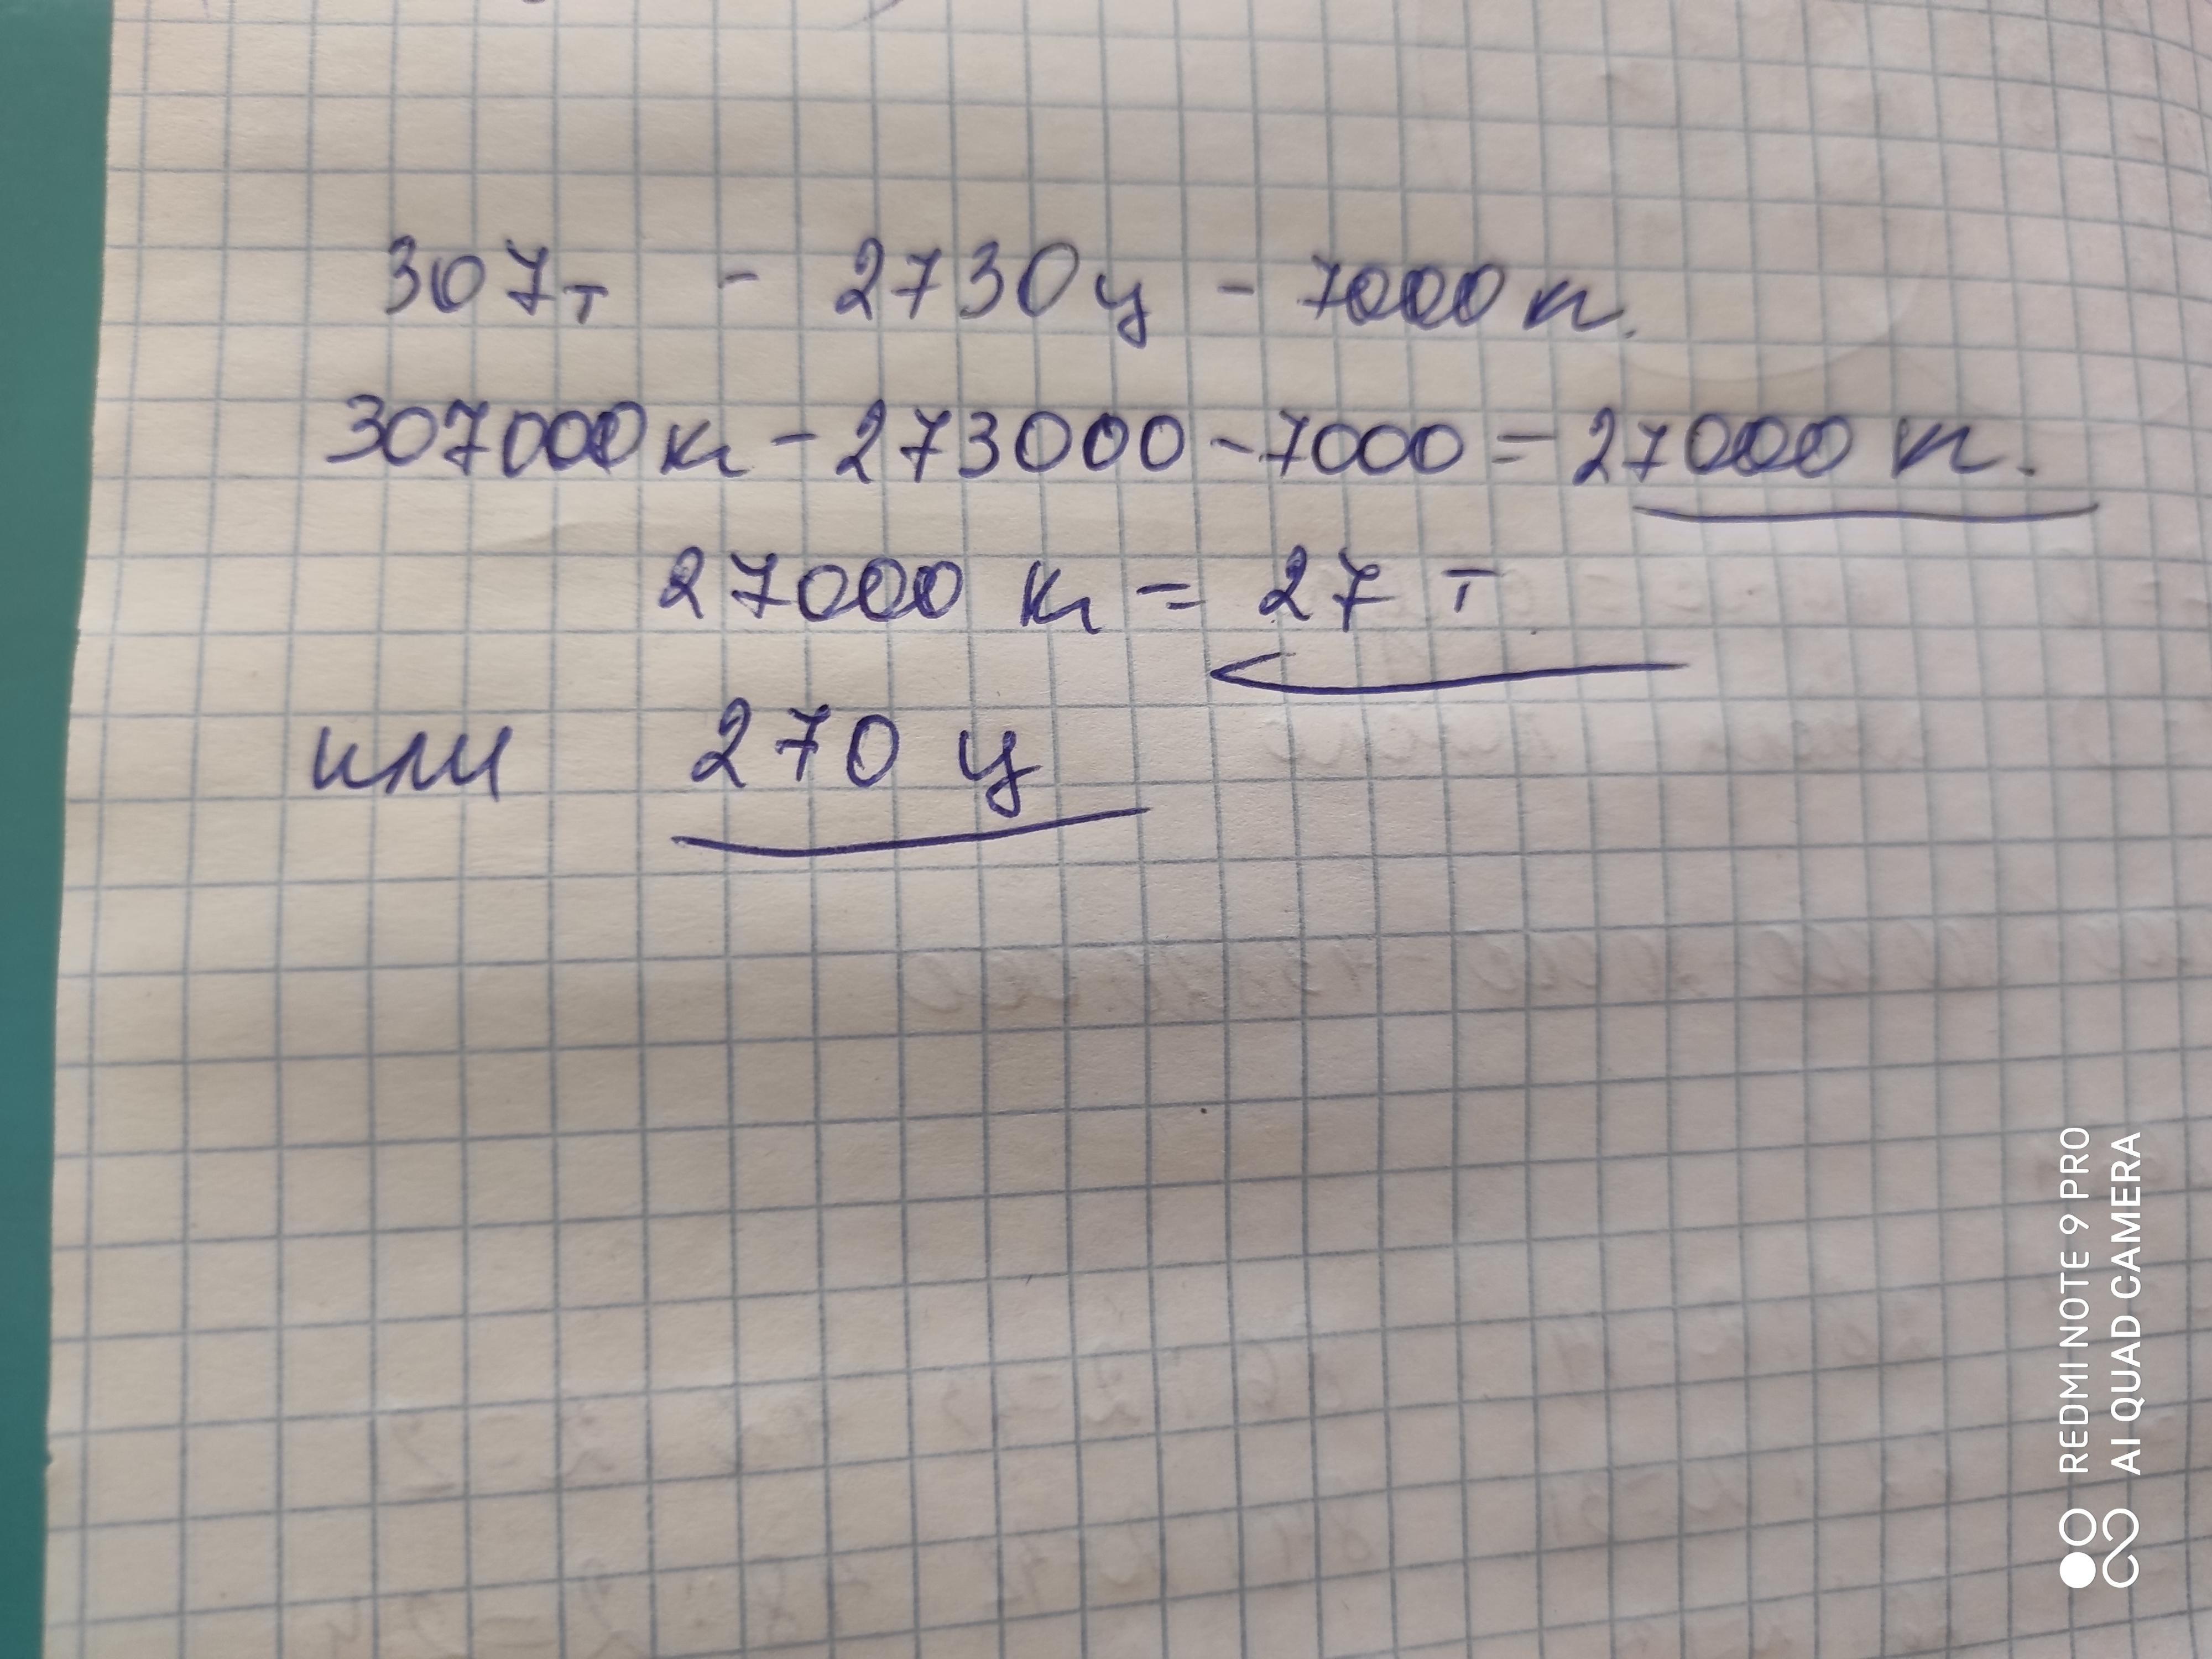 307т - 2730ц - 7000кг.
307000кг - 273000 - 7000 = 27000 кг.
27000 кг = 27 т
или 270 ц
REDMI NOTE 9 PRO
AI QUAD CAMERA